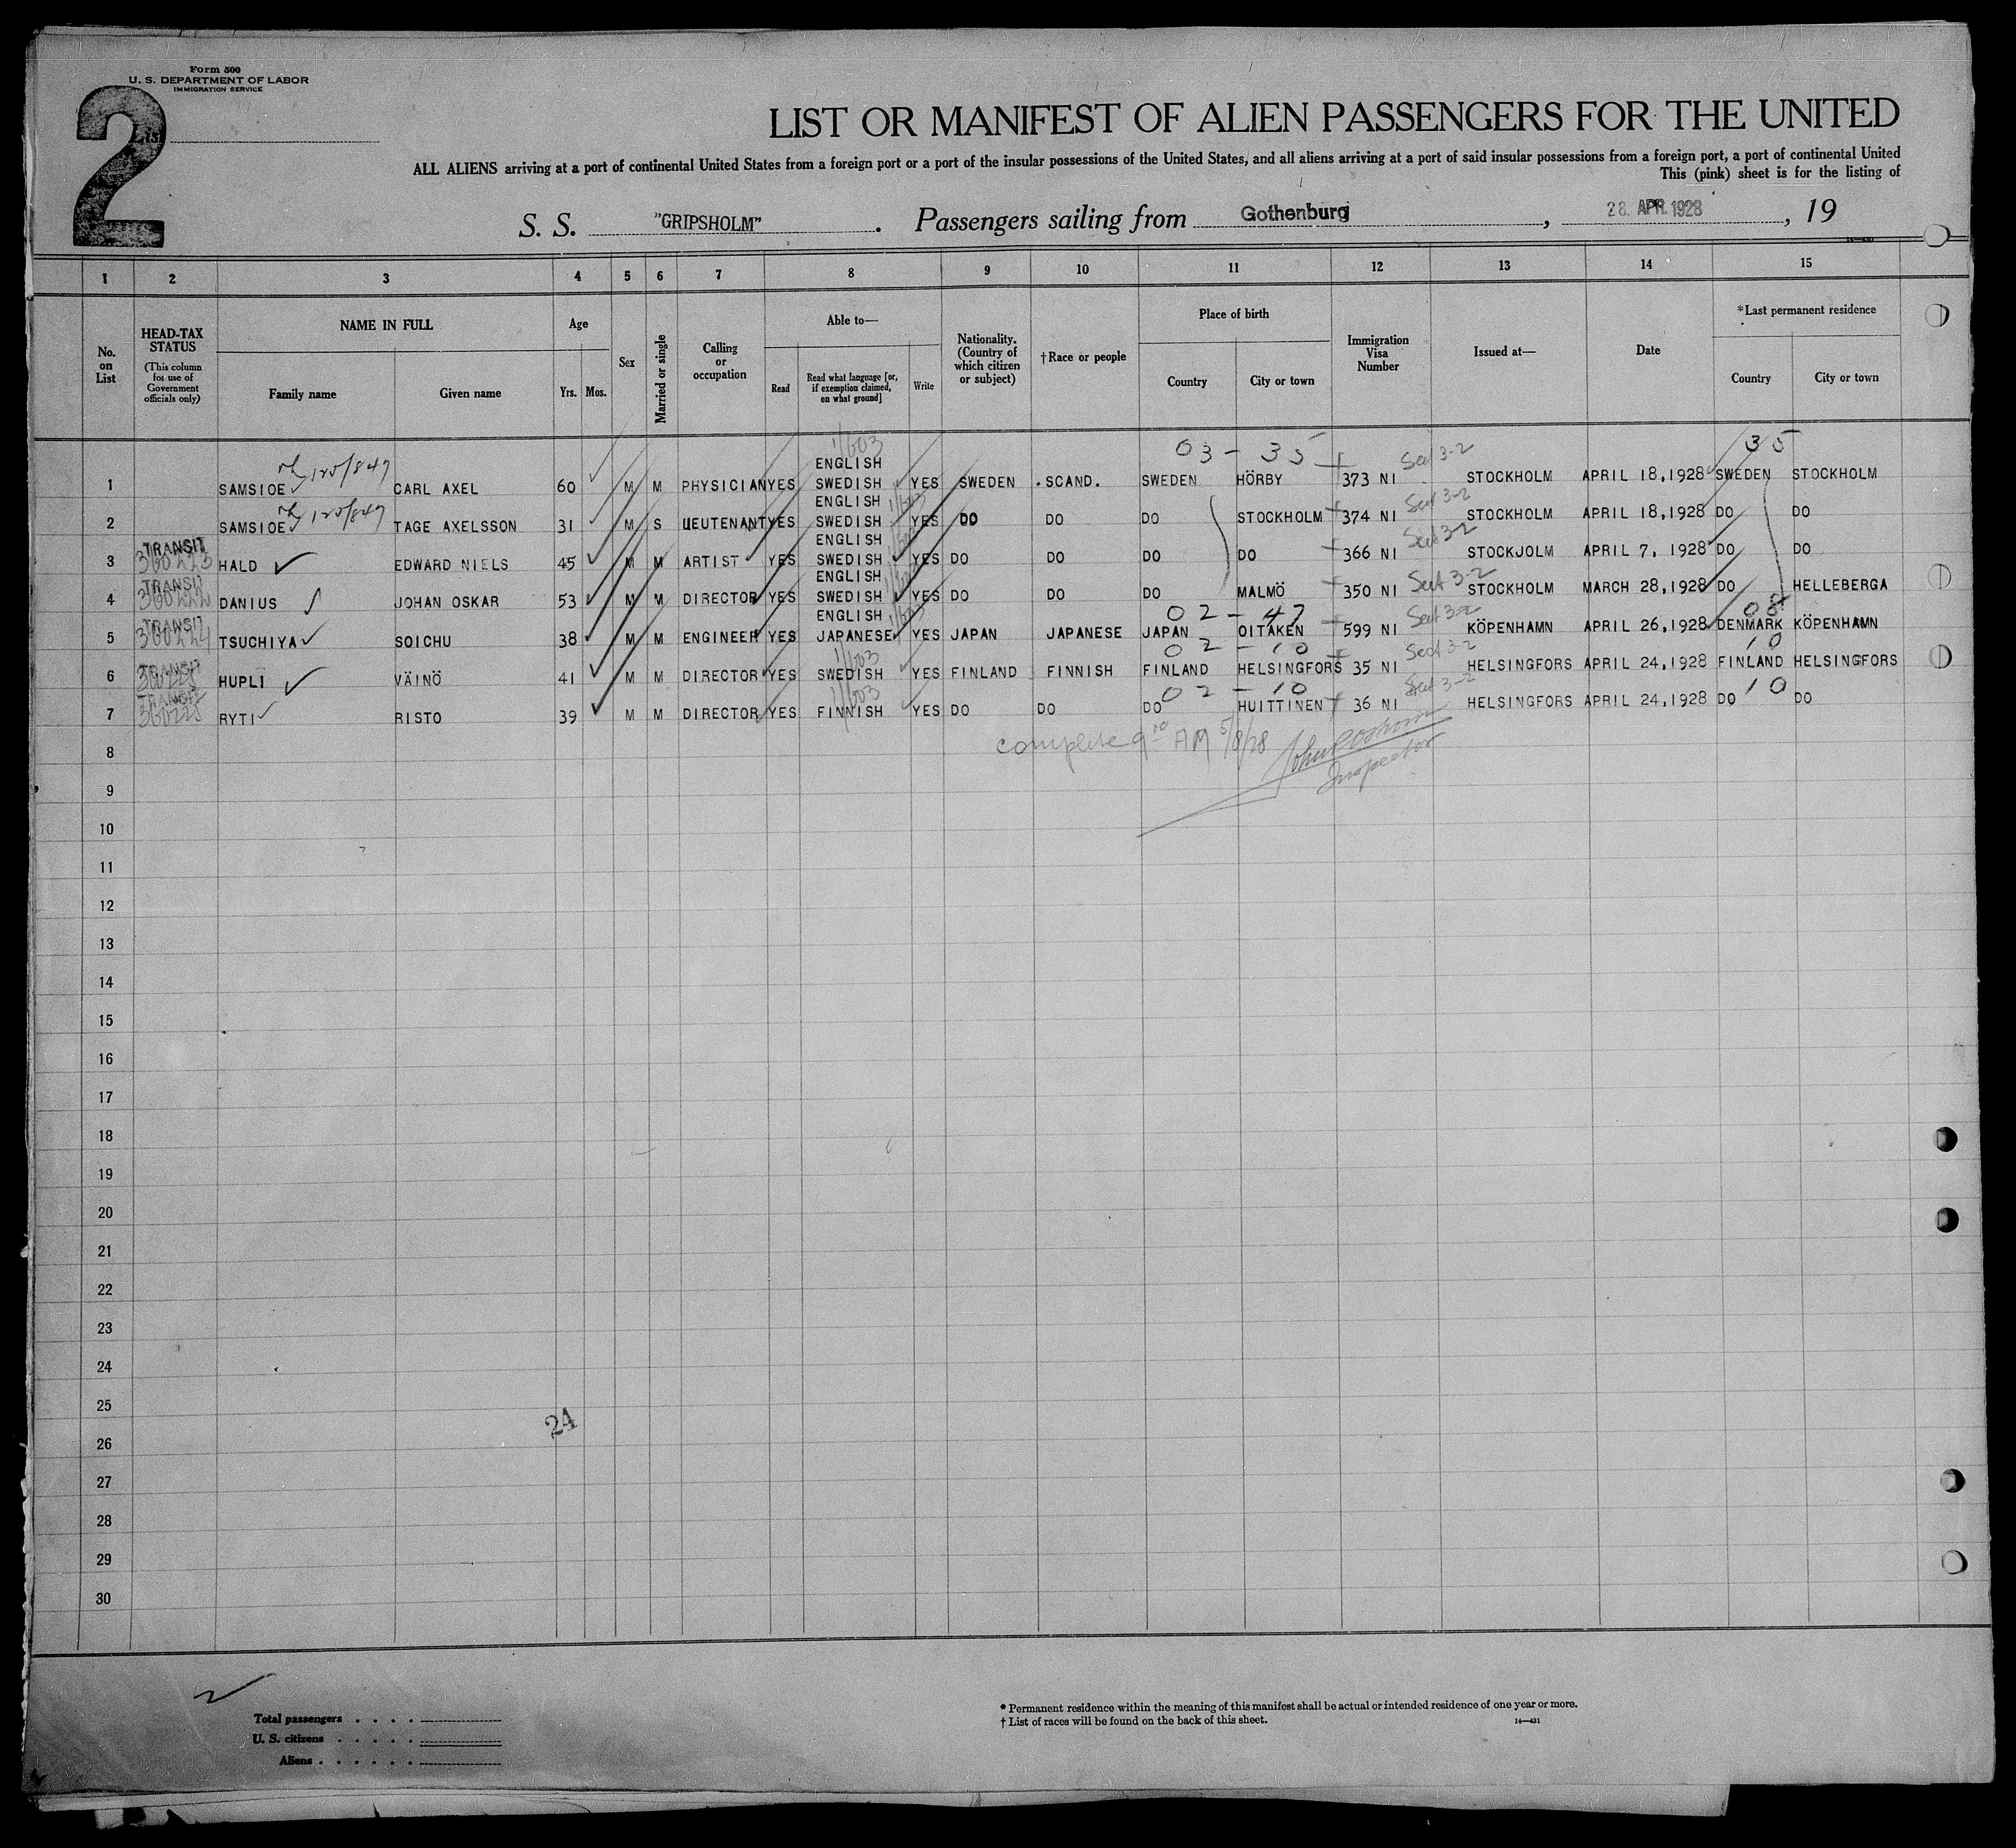 Form 500
U. S. DEPARTMENT OF LABOR
IMMIGRATION SERVICE
2
LIST OR MANIFEST OF ALIEN PASSENGERS FOR THE UNITED
ALL ALIENS arriving at a port of continental United States from a foreign port or a port of the insular possessions of the United States, and all aliens arriving at a port of said insular possessions from a foreign port, a port of continental United
This (pink) sheet is for the listing of
S. S. "GRIPSHOLM". Passengers sailing from Gothenburg, 28. APR. 1928, 19
1 2 3 4 5 6 7 8 9 10 11 12 13 14 15
No. on List
HEAD-TAX STATUS
(This column for use of Government officials only)
NAME IN FULL
Family name Given name
Age
Yrs. Mos.
Sex
Married or single
Calling or occupation
Able to—
Read
Read what language [or, if exemption claimed, on what ground]
Write
Nationality. (Country of which citizen or subject)
†Race or people
Place of birth
Country City or town
Immigration Visa Number
Issued at—
Date
*Last permanent residence
Country City or town
1/603 03 - 35 35
1 SAMSIOE 125/849 CARL AXEL 60 M M PHYSICIAN YES ENGLISH SWEDISH YES SWEDEN SCAND. SWEDEN HÖRBY 373 NI Sect 3-2 STOCKHOLM APRIL 18,1928 SWEDEN STOCKHOLM
2 SAMSIOE 125/849 TAGE AXELSSON 31 M S LIEUTENANT YES ENGLISH SWEDISH YES DO DO DO STOCKHOLM 374 NI Sect 3-2 STOCKHOLM APRIL 18,1928 DO DO
3 TRANSIT 360223 HALD EDWARD NIELS 45 M M ARTIST YES ENGLISH SWEDISH YES DO DO DO DO 366 NI Sect 3-2 STOCKJOLM APRIL 7, 1928 DO DO
4 TRANSIT 360222 DANIUS JOHAN OSKAR 53 M M DIRECTOR YES ENGLISH SWEDISH YES DO DO DO MALMÖ 350 NI Sect 3-2 STOCKHOLM MARCH 28,1928 DO HELLEBERGA
02 - 47 08
5 TRANSIT 360224 TSUCHIYA SOICHU 38 M M ENGINEER YES ENGLISH JAPANESE YES JAPAN JAPANESE JAPAN OITAKEN 599 NI Sect 3-2 KÖPENHAMN APRIL 26,1928 DENMARK KÖPENHAMN
1/603 02 - 10 10
6 TRANSIT HUPLI VÄINÖ 41 M M DIRECTOR YES SWEDISH YES FINLAND FINNISH FINLAND HELSINGFORS 35 NI Sect 3-2 HELSINGFORS APRIL 24,1928 FINLAND HELSINGFORS
1/603 02 - 10 10
7 TRANSIT 360225 RYTI RISTO 39 M M DIRECTOR YES FINNISH YES DO DO DO HUITTINEN 36 NI Sect 3-2 HELSINGFORS APRIL 24,1928 DO DO
complete 9 00 AM 5/8/28
Inspector
8
9
10
11
12
13
14
15
16
17
18
19
20
21
22
23
24
25
24
26
27
28
29
30
Total passengers
U. S. citizens
Aliens
* Permanent residence within the meaning of this manifest shall be actual or intended residence of one year or more.
† List of races will be found on the back of this sheet.
14—431